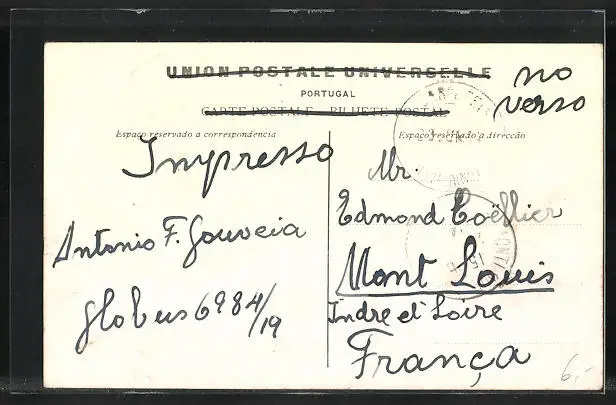 UNION POSTALE UNIVERSELLE
PORTUGAL
CARTE POSTALE - BILHETE POSTAL
no
verso
Espaço reservado a correspondencia
Espaço reservado a direcção
Impresso
Antonio F. Gouveia
Globus 6984/19
Mr.
Edmond Coëllier
Mont Louis
Indre et Loire
França
6.-